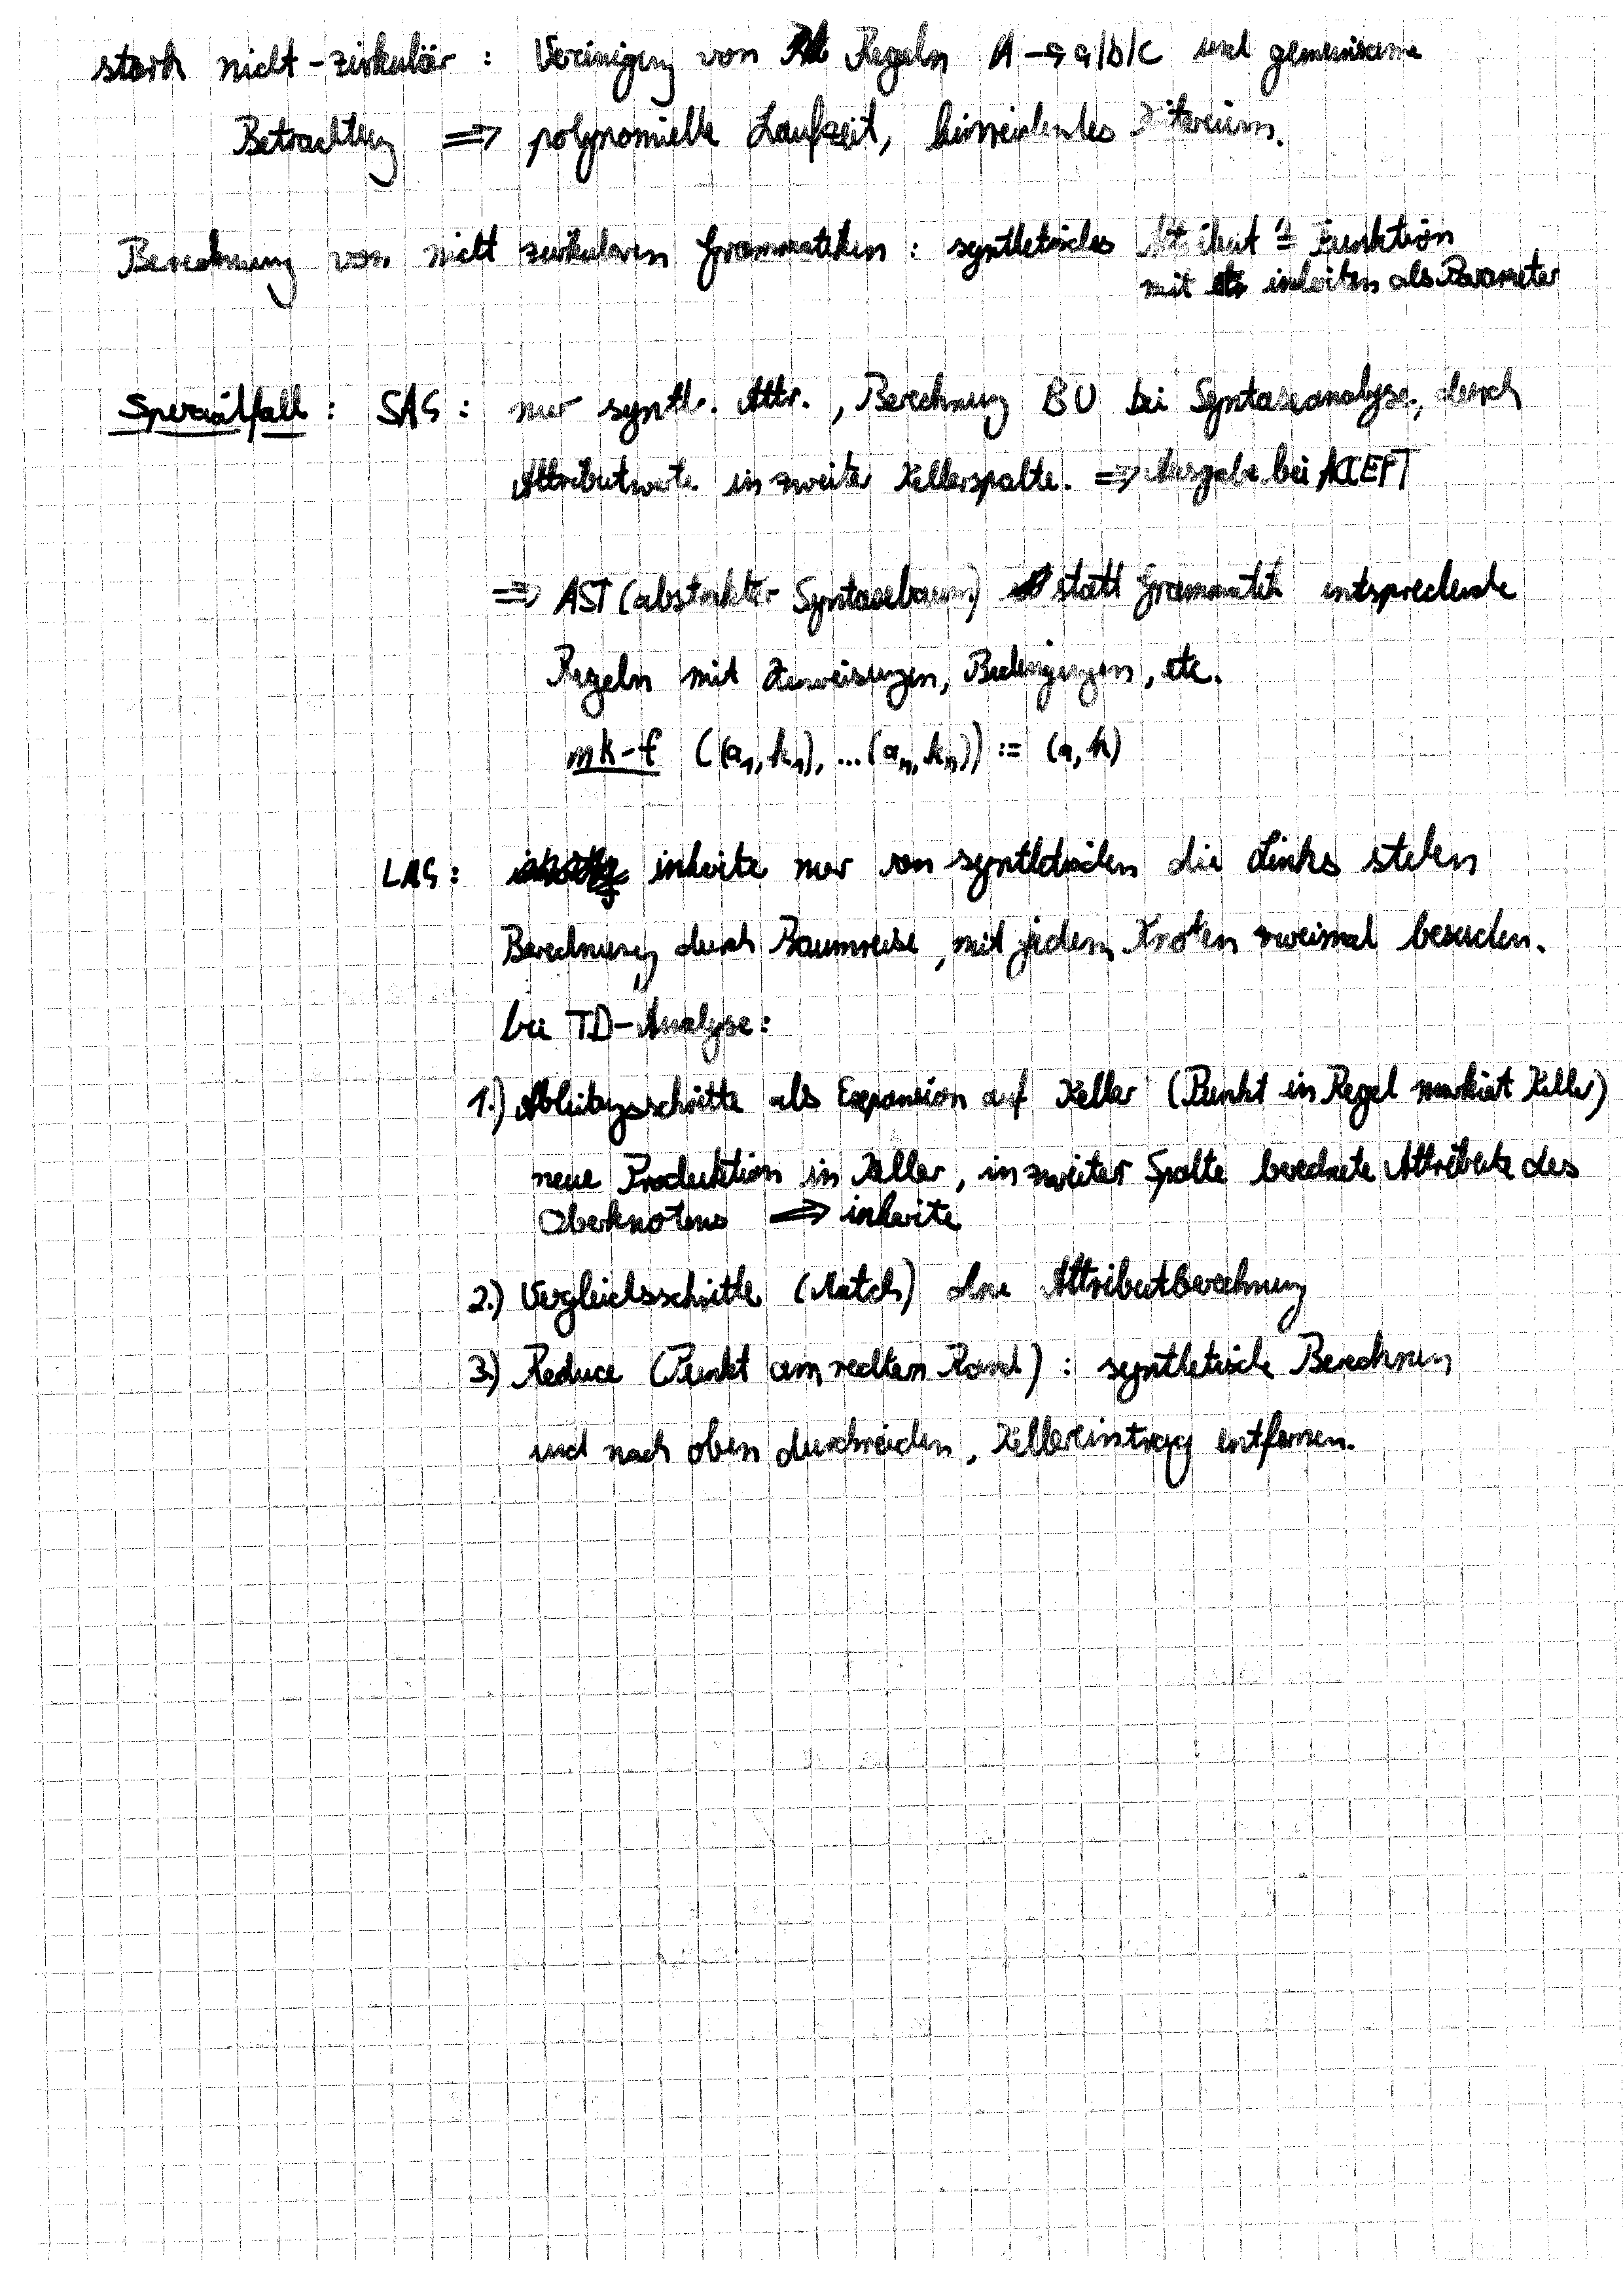 stark nicht-zirkulär : Vereinigung von Regeln A → a/b/c und gemeinsame
Betrachtung ⟹ polynomielle Laufzeit, hinreichendes Kriterium.
Berechnung von nicht zirkulären Grammatiken : synthetisches Attribut ≙ Funktion
mit inheriten als Parameter
Spezialfall : SAG : nur synth. Attr., Berechnung BU bei Syntaxanalyse, durch
Attributwerte in zweiter Kellerspalte. ⟹ Ausgabe bei ACCEPT
⟹ AST (abstrakter Syntaxbaum) statt Grammatik entsprechende
Regeln mit Zuweisungen, Bedingungen, etc.
mk-f ((a₁,k₁), ...(aₙ,kₙ)) := (a,k)
LAG : inherite nur von synthetischen die Links stehen
Berechnung durch Baumreise, mit jedem Knoten zweimal besuchen.
bei TD-Analyse :
1.) Ableitungsschritte als Expansion auf Keller (Punkt in Regel markiert Keller)
neue Produktion in Keller, in zweiter Spalte berechnete Attribute des
Oberknotens ⟹ inherite
2.) Vergleichsschritte (Match) ohne Attributberechnung
3.) Reduce (Punkt am rechten Rand) : synthetische Berechnung
und nach oben durchreichen, Kellereintrag entfernen.